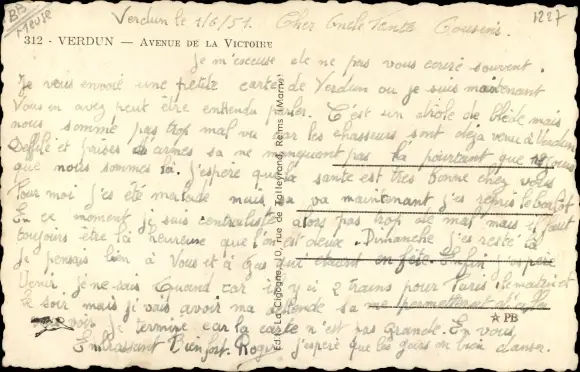 BB
Meuse
1227
Verdun le 1/6/51. Cher Oncle Tante Cousins.
312 - VERDUN — AVENUE DE LA VICTOIRE
je m'excuse de ne pas vous écrire souvent.
Je vous envoie une petite carte de Verdun ou je suis maintenant
Vous en avez peut être entendu parler. C'est un drole de blède mais
nous somme pas trop mal vu car les chasseurs sont deja venu à Verdun
Défilé et prises d'armes sa ne manquent pas
que nous sommes là. j'espère que la santé est très bonne chez vous
Pour moi j'es été malade mais sa va maintenant j'es repris le
En ce moment je suis centraliste alors pas trop de mal mais il faut
toujours être là heureuse que l'on est deux. Dimanche j'es resté à
je pensais bien à Vous et à qui étaient en fête. Enfin j'espère
Venir. je ne sais Quand car il y a 2 trains pour Paris le matin et
le soir mais je vais avoir ma sa me permettent d'aller
voir. je termine car la carte n'est pas Grande. En vous
Embrassant Bien fort. Roger j'espère que les gars on bien danser.
Ed. "La Cigogne", 10, rue de Talleyrand, Reims (Marne)
☆ PB